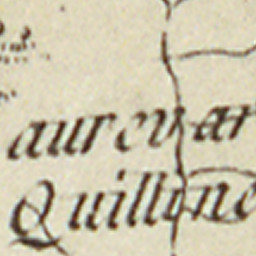 aurevær
Quillone